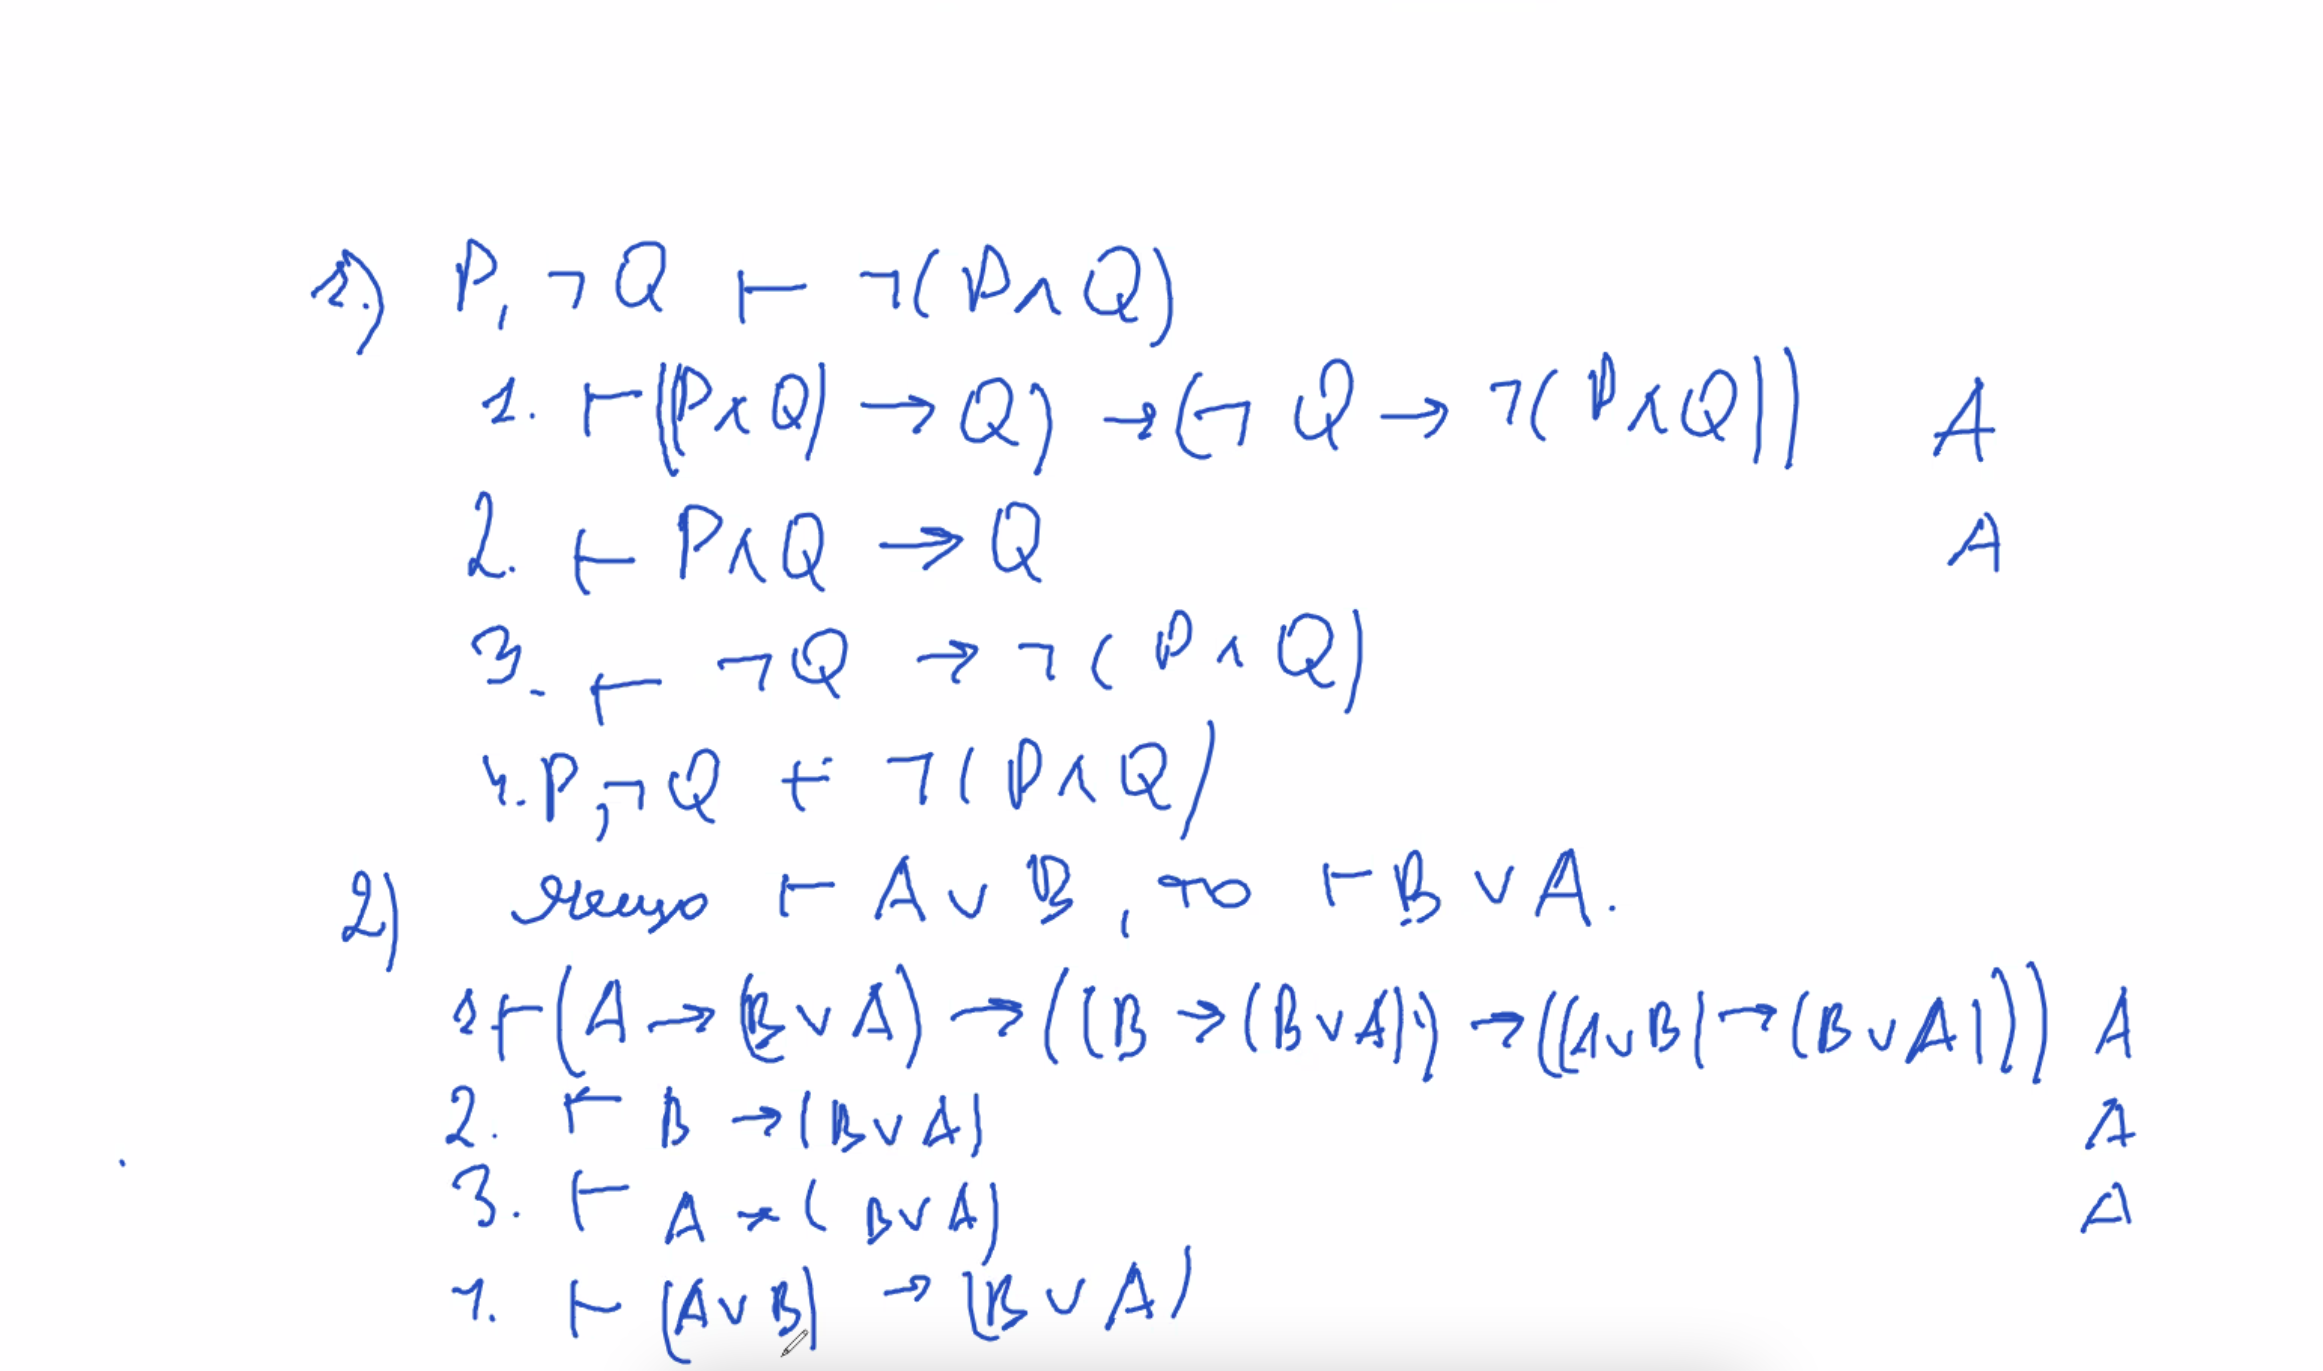 1.) P, ¬Q ⊢ ¬(P∧Q)
1. ⊢((P∧Q) → Q) → (¬Q → ¬(P∧Q)) A
2. ⊢ P∧Q → Q A
3. ⊢ ¬Q → ¬(P∧Q)
4. P, ¬Q ⊢ ¬(P∧Q)
2) якщо ⊢ A ∨ B, то ⊢ B ∨ A.
1 ⊢ (A → (B ∨ A) → ((B → (B ∨ A)) → ((A∨B) → (B ∨ A))) A
2. ⊢ B → (B∨A) A
3. ⊢ A → (B∨A) A
4. ⊢ (A∨B) → (B ∨ A)